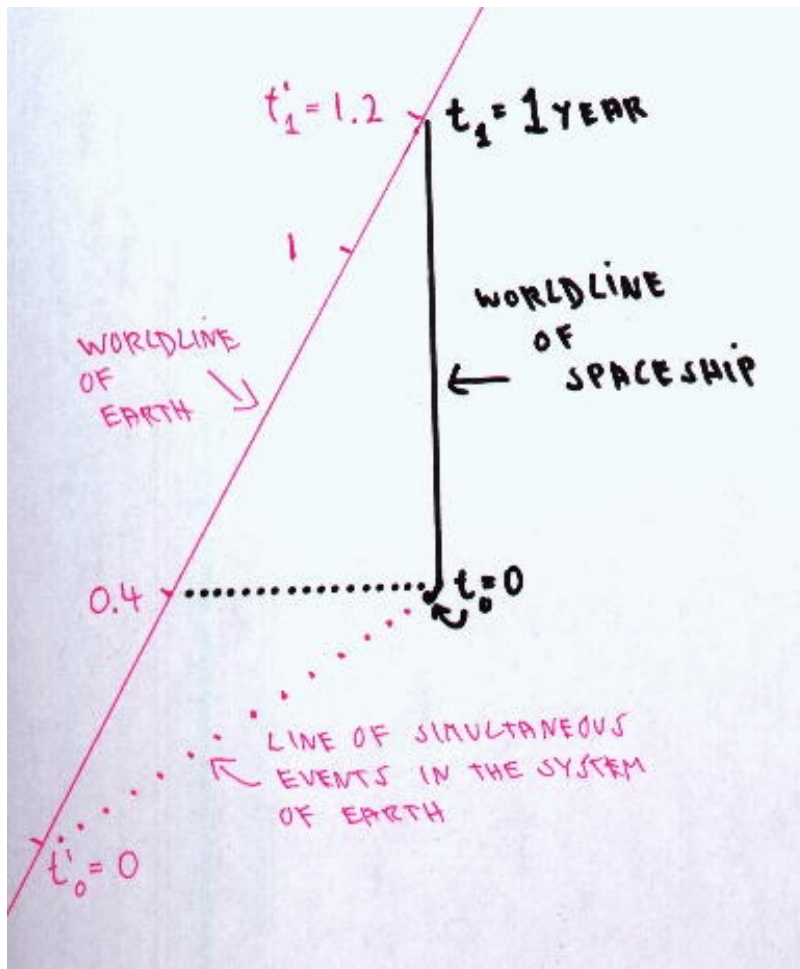 t'₁ = 1.2
t₁ = 1 YEAR
1
WORLDLINE
OF
SPACESHIP
WORLDLINE
OF
EARTH
0.4
t₀ = 0
LINE OF SIMULTANEOUS
EVENTS IN THE SYSTEM
OF EARTH
t'₀ = 0